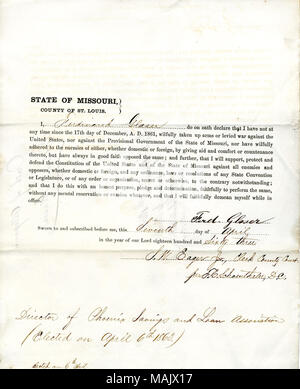 STATE OF MISSOURI,
COUNTY OF ST. LOUIS.
I, Ferdinand Glaser do on oath declare that I have not at
any time since the 17th day of December, A. D. 1861, wilfully taken up arms or levied war against the
United States, nor against the Provisional Government of the State of Missouri, nor have wilfully
adhered to the enemies of either, whether domestic or foreign, by giving aid and comfort or countenance
thereto, but have always in good faith opposed the same; and further, that I will support, protect and
defend the Constitution of the United States and of the State of Missouri against all enemies and
opposers, whether domestic or foreign, any ordinance, law or resolution of any State Convention
or Legislature, or of any order or organization, secret or otherwise, to the contrary notwithstanding;
and that I do this with an honest purpose, pledge and determination, faithfully to perform the same,
without any mental reservation or evasion whatever, and that I will faithfully demean myself while in
office.
Ferd. Glaser
Sworn to and subscribed before me, this Seventh day of April
in the year of our Lord eighteen hundred and Sixty three
Clerk County Court
D.C.
Director of Phoenix Savings and Loan Association
(Elected on April 6th 1863)
alamy
Image ID: MAJX17
www.alamy.com